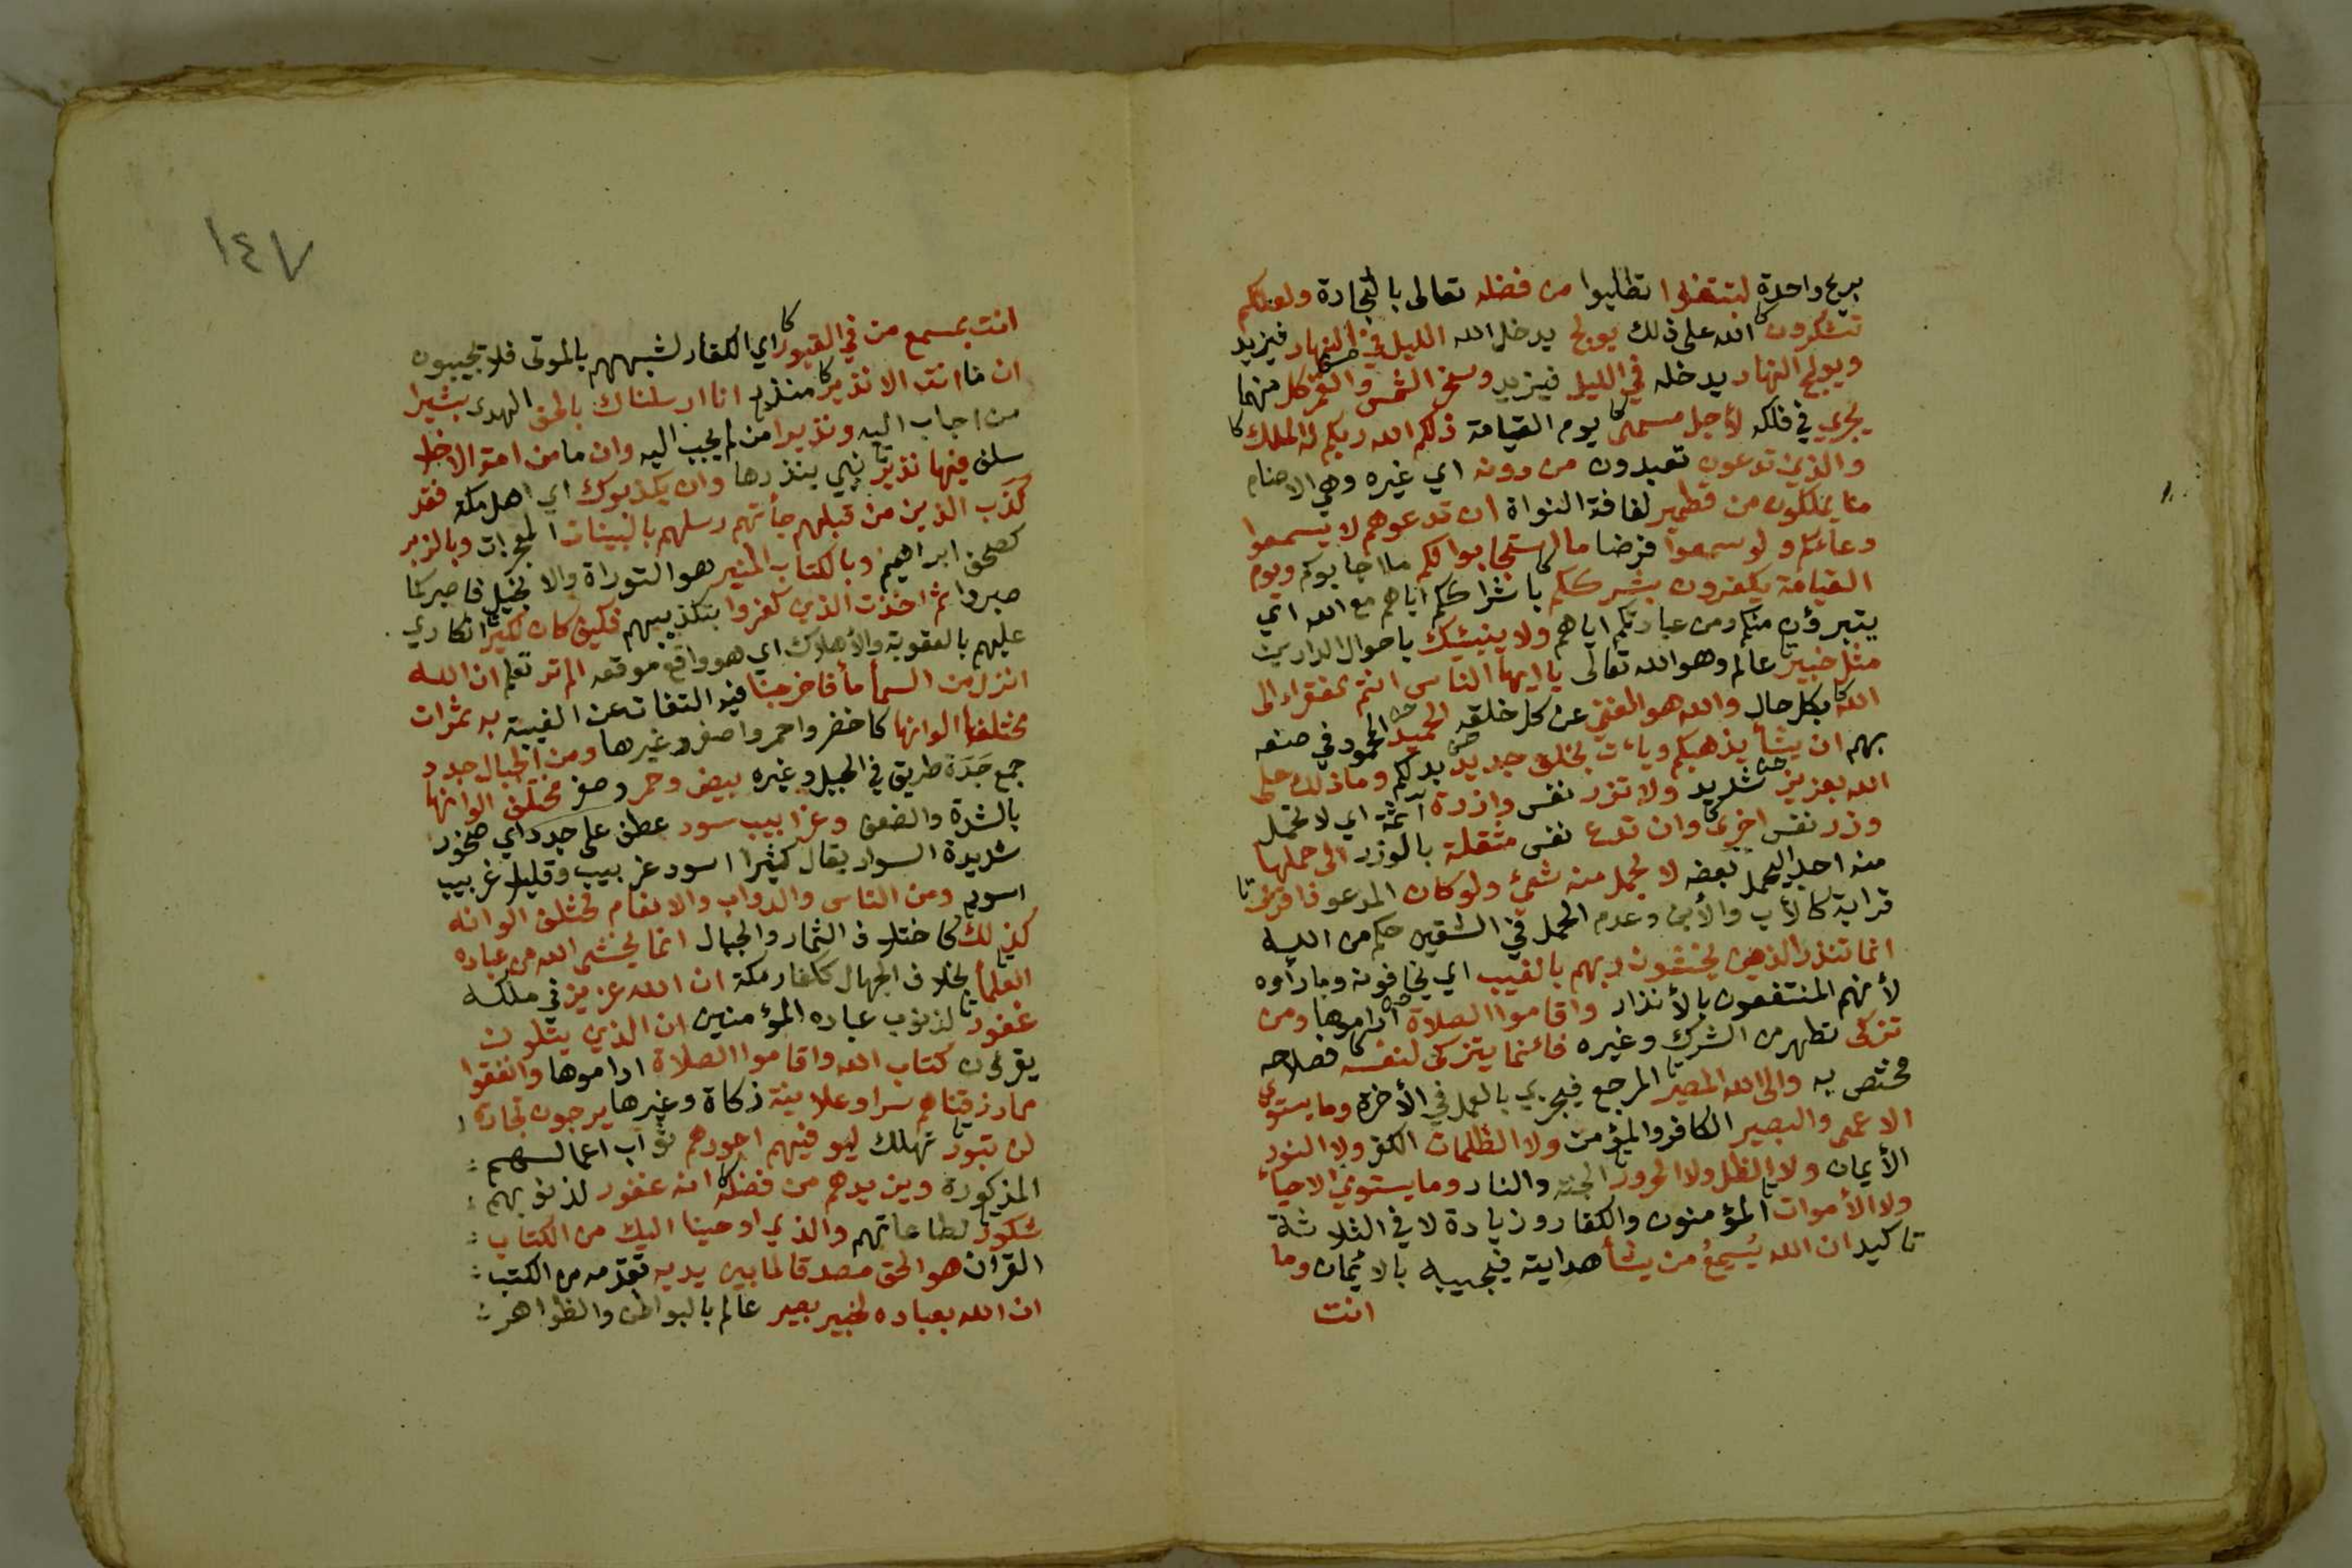 بريح واحدة لتبتغوا تطلبوا من فضله تعالى بالتجارة ولعلكم
تشكرون الله على ذلك يولج يدخل الله الليل في النهار فيزيد
ويولج النهار يدخله في الليل فيزيد وسخر الشمس والقمر كل منهما
يجري في فلكه لأجل مسمى يوم القيامة ذلكم الله ربكم له الملك
والذين تدعون تعبدون من دونه اي غيره وهي الاصنام
ما يملكون من قطمير لفافة النواة ان تدعوهم لا يسمعوا
دعاءكم ولو سمعوا فرضا ما استجابوا لكم ما اجابوكم ويوم
القيامة يكفرون بشرككم باشراككم اياهم مع الله اي
يتبرؤن منكم ومن عبادتكم اياهم ولا ينبئك باحوال الدارين
مثل خبير عالم وهو الله تعالى يا ايها الناس انتم الفقراء الى
الله بكل حال والله هو الغني عن كل خلقه الحميد المحمود في صنعه
بهم ان يشأ يذهبكم ويأت بخلق جديد بدلكم وما ذلك على
الله بعزيز شديد ولا تزر نفس وازرة آثمة اي لا تحمل
وزر نفس اخرى وان تدع نفس مثقلة بالوزر الى حملها
منه احدا ليحمل بعضه لا يحمل منه شيئ ولو كان المدعو ذا قربى
قرابة كالأب والأبن وعدم الحمل في الشقين حكم من الله
انما تنذر الذين يخشون ربهم بالغيب اي يخافونه وما رأوه
لأنهم المنتفعون بالأنذار واقاموا الصلاة اداموها ومن
تزكى تطهر من الشرك وغيره فانما يتزكى لنفسه فصلاحه
مختص به والى الله المصير المرجع فيجزي بالعمل في الأخرة وما يستوي
الاعمى والبصير الكافر والمؤمن ولا الظلمات الكفر ولا النور
الأيمان ولا الظل ولا الحرور الجنة والنار وما يستوي الاحياء
ولا الأموات المؤمنون والكفار وزيادة لا في الثلاثة
تاكيد ان الله يُسمِعُ من يشأ هدايته فيجيبه بالايمان وما
انت
١٤٧
انت بمسمع من في القبور اي الكفار لشبههم بالموتى فلا تجيبون
ان ما انت الا نذير منذر انا ارسلناك بالحق الهدى بشيرا
من اجاب اليه ونذيرا من لم يجب اليه وان ما من امة الا خلا
سلف فيها نذير نبي ينذرها وان يكذبوك اي اهل مكة فقد
كذب الذين من قبلهم جأتهم رسلهم بالبينات المعجزات وبالزبر
كصحف ابراهيم وبالكتاب المنير هو التوراة والانجيل فاصبر كما
صبروا ثم اخذت الذين كفروا بتكذيبهم فكيف كان نكير انكاري
عليهم بالعقوبة والأهلاك اي هو واقع موقعه الم تر تعلم ان الله
انزل من السمأ مأ فاخرجنا فيه التفات عن الغيبة به ثمرات
مختلفا الوانها كاخضر واحمر واصفر وغيرها ومن الجبال جدد
جمع جَدة طريق في الجبل وغيره بيض وحمر وصفر مختلف الوانها
بالشدة والضعف وغرابيب سود عطف على جدد اي صخور
شديدة السواد يقال كثيرا اسود غربيب وقليلا غربيب
اسود ومن الناس والدواب والانعام مختلف الوانه
كذلك كاختلاف الثمار والجبال انما يخشى الله من عباده
العلمأ بخلاف الجهال ككفار مكة ان الله عزيز في ملكه
غفور لذنوب عباده المؤمنين ان الذين يتلون
يقرؤن كتاب الله واقاموا الصلاة اداموها وانفقوا
مما رزقناهم سرا وعلانية زكاة وغيرها يرجون تجارة
لن تبور تهلك ليوفيهم اجورهم ثواب اعمالهم
المذكورة ويزيدهم من فضله انه غفور لذنوبهم
شكور لطاعاتهم والذي اوحينا اليك من الكتاب
القرآن هو الحق مصدقا لما بين يديه تقدمه من الكتب
ان الله بعباده لخبير بصير عالم بالبواطن والظواهر